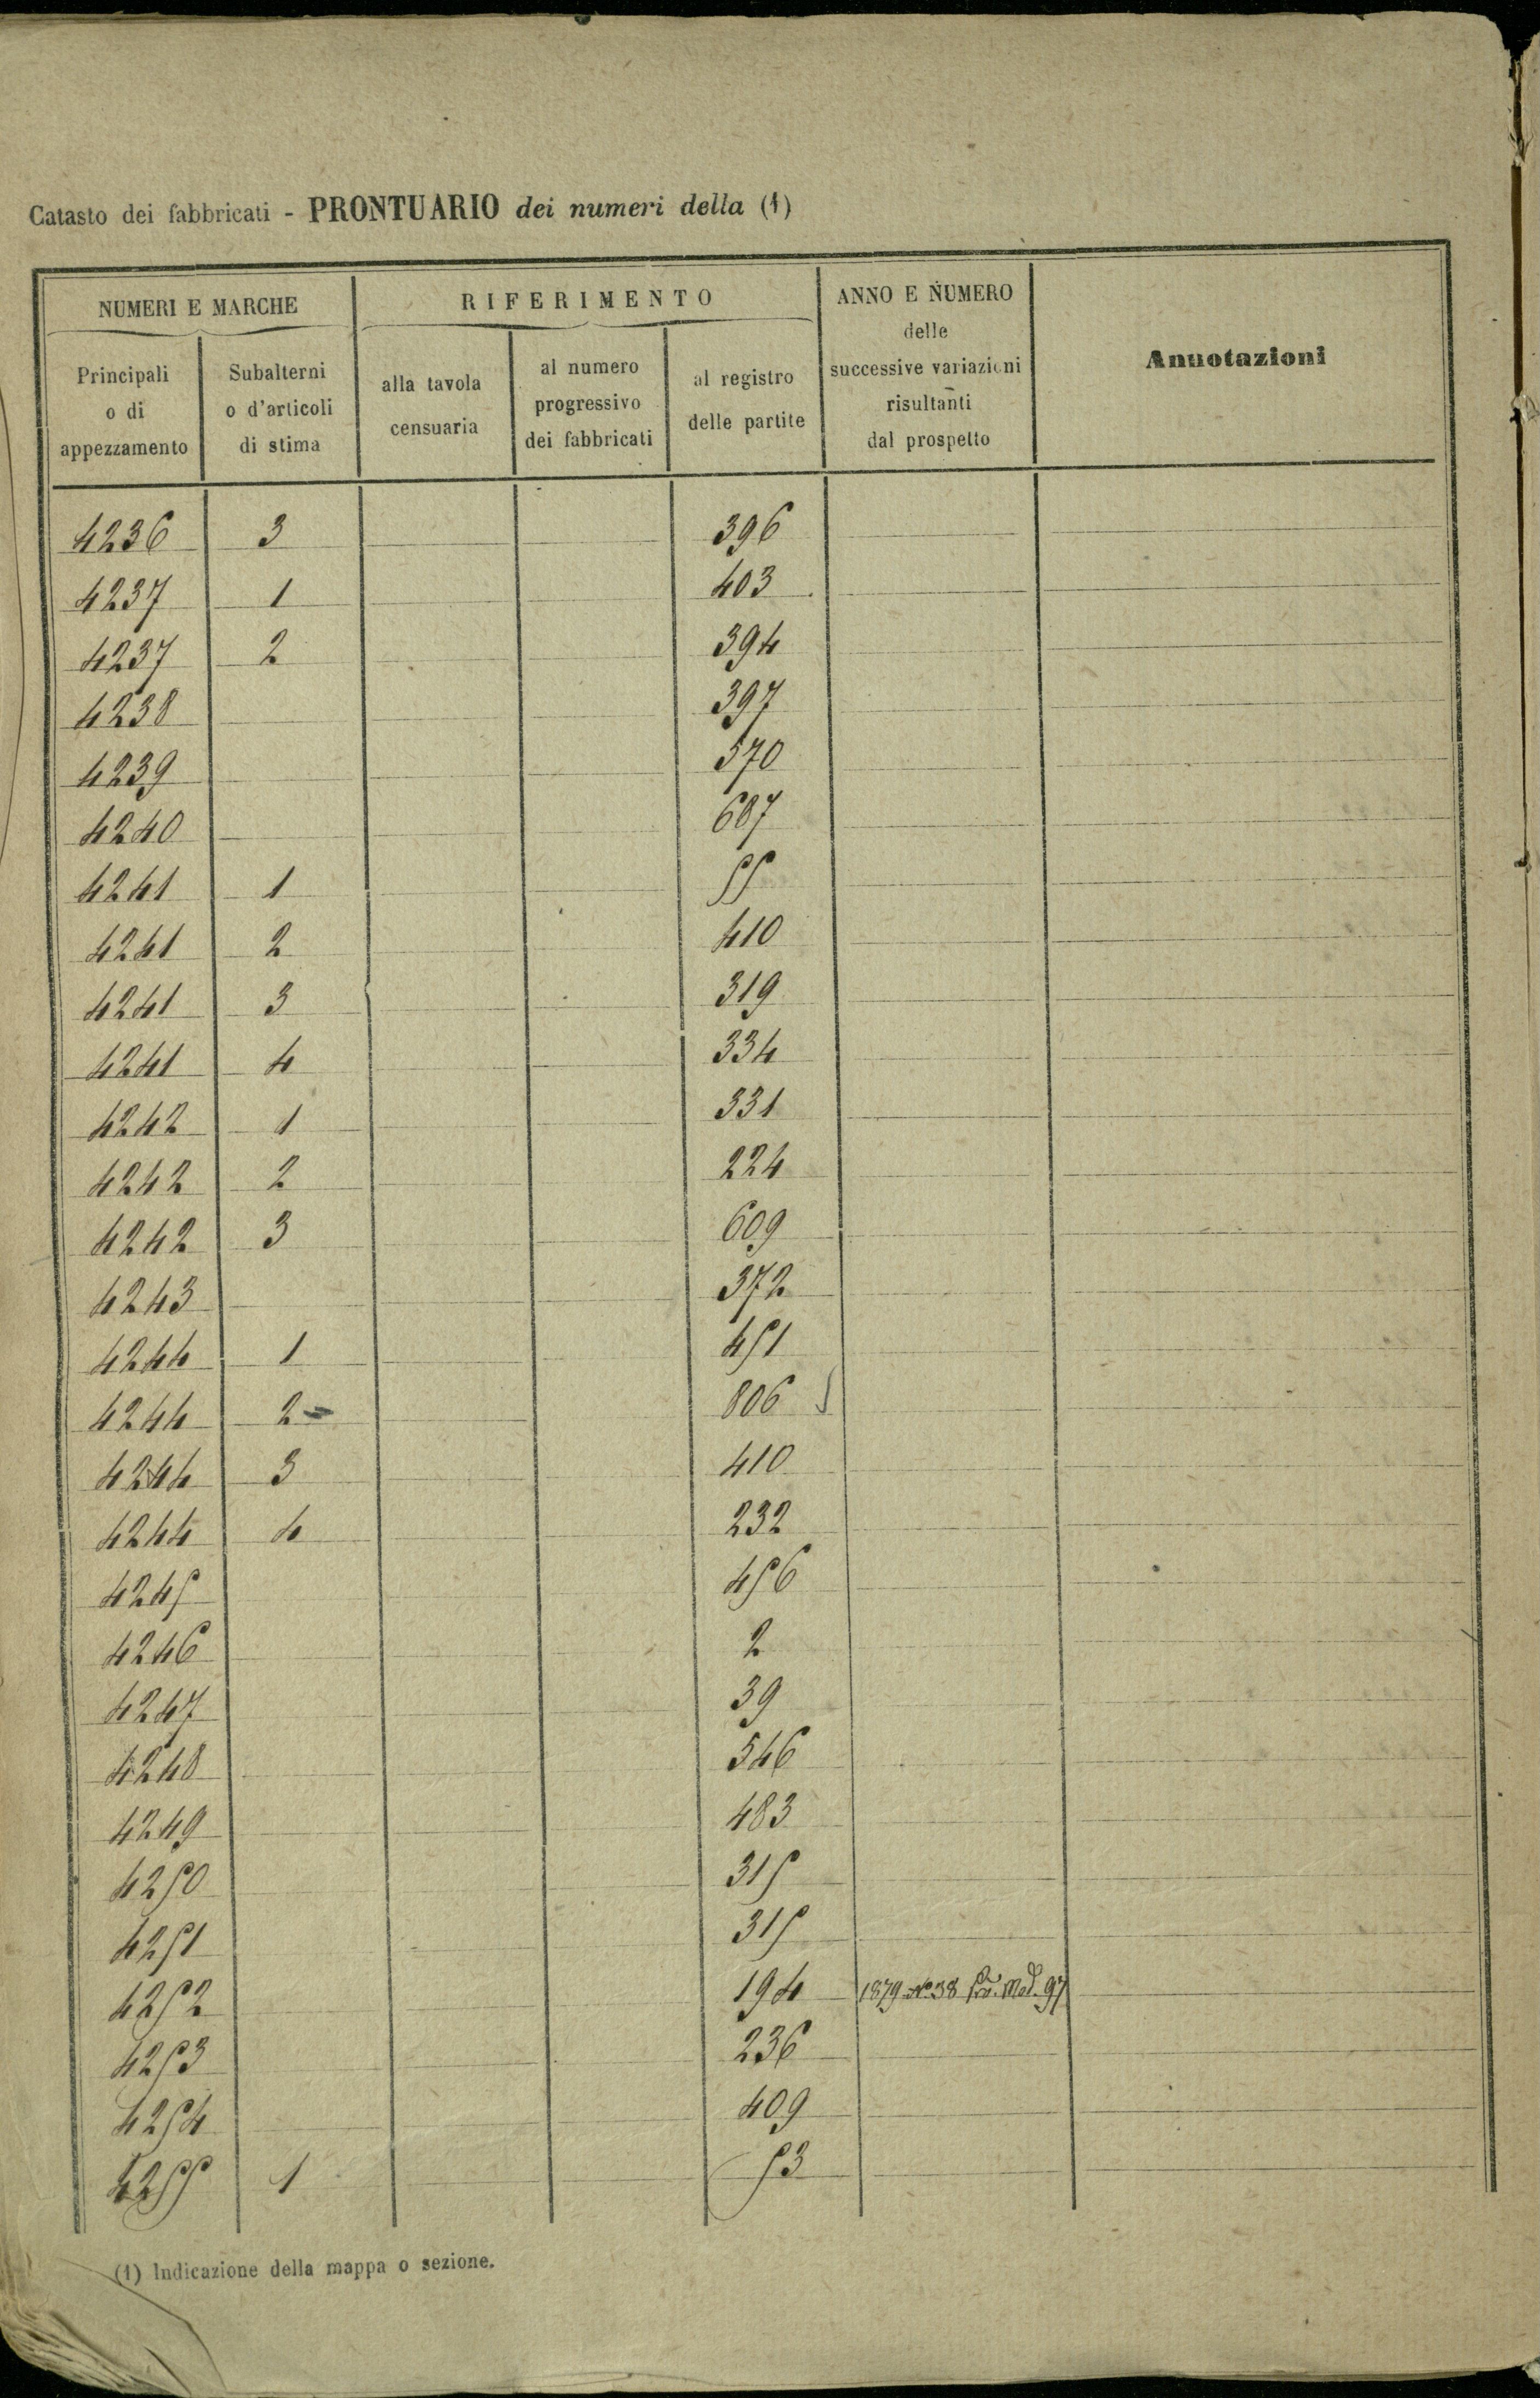 Catasto dei fabbricati - PRONTUARIO dei numeri della (1)
NUMERI E MARCHE
RIFERIMENTO
ANNO E NUMERO
delle
successive variazioni
risultanti
dal prospetto
Annotazioni
Principali
o di
appezzamento
Subalterni
o d'articoli
di stima
alla tavola
censuaria
al numero
progressivo
dei fabbricati
al registro
delle partite
4236 3 396
4237 1 403
4237 2 394
4238 397
4239 570
4240 607
4241 1 55
4241 2 410
4241 3 319
4241 4 334
4242 1 331
4242 2 224
4242 3 609
4243 372
4244 1 451
4244 2 806
4244 3 410
4244 4 232
4245 456
4246 2
4247 39
4248 546
4249 483
4250 315
4251 315
4252 194 1879 No 38 Mod. 97
4253 236
4254 409
4255 1 53
(1) Indicazione della mappa o sezione.